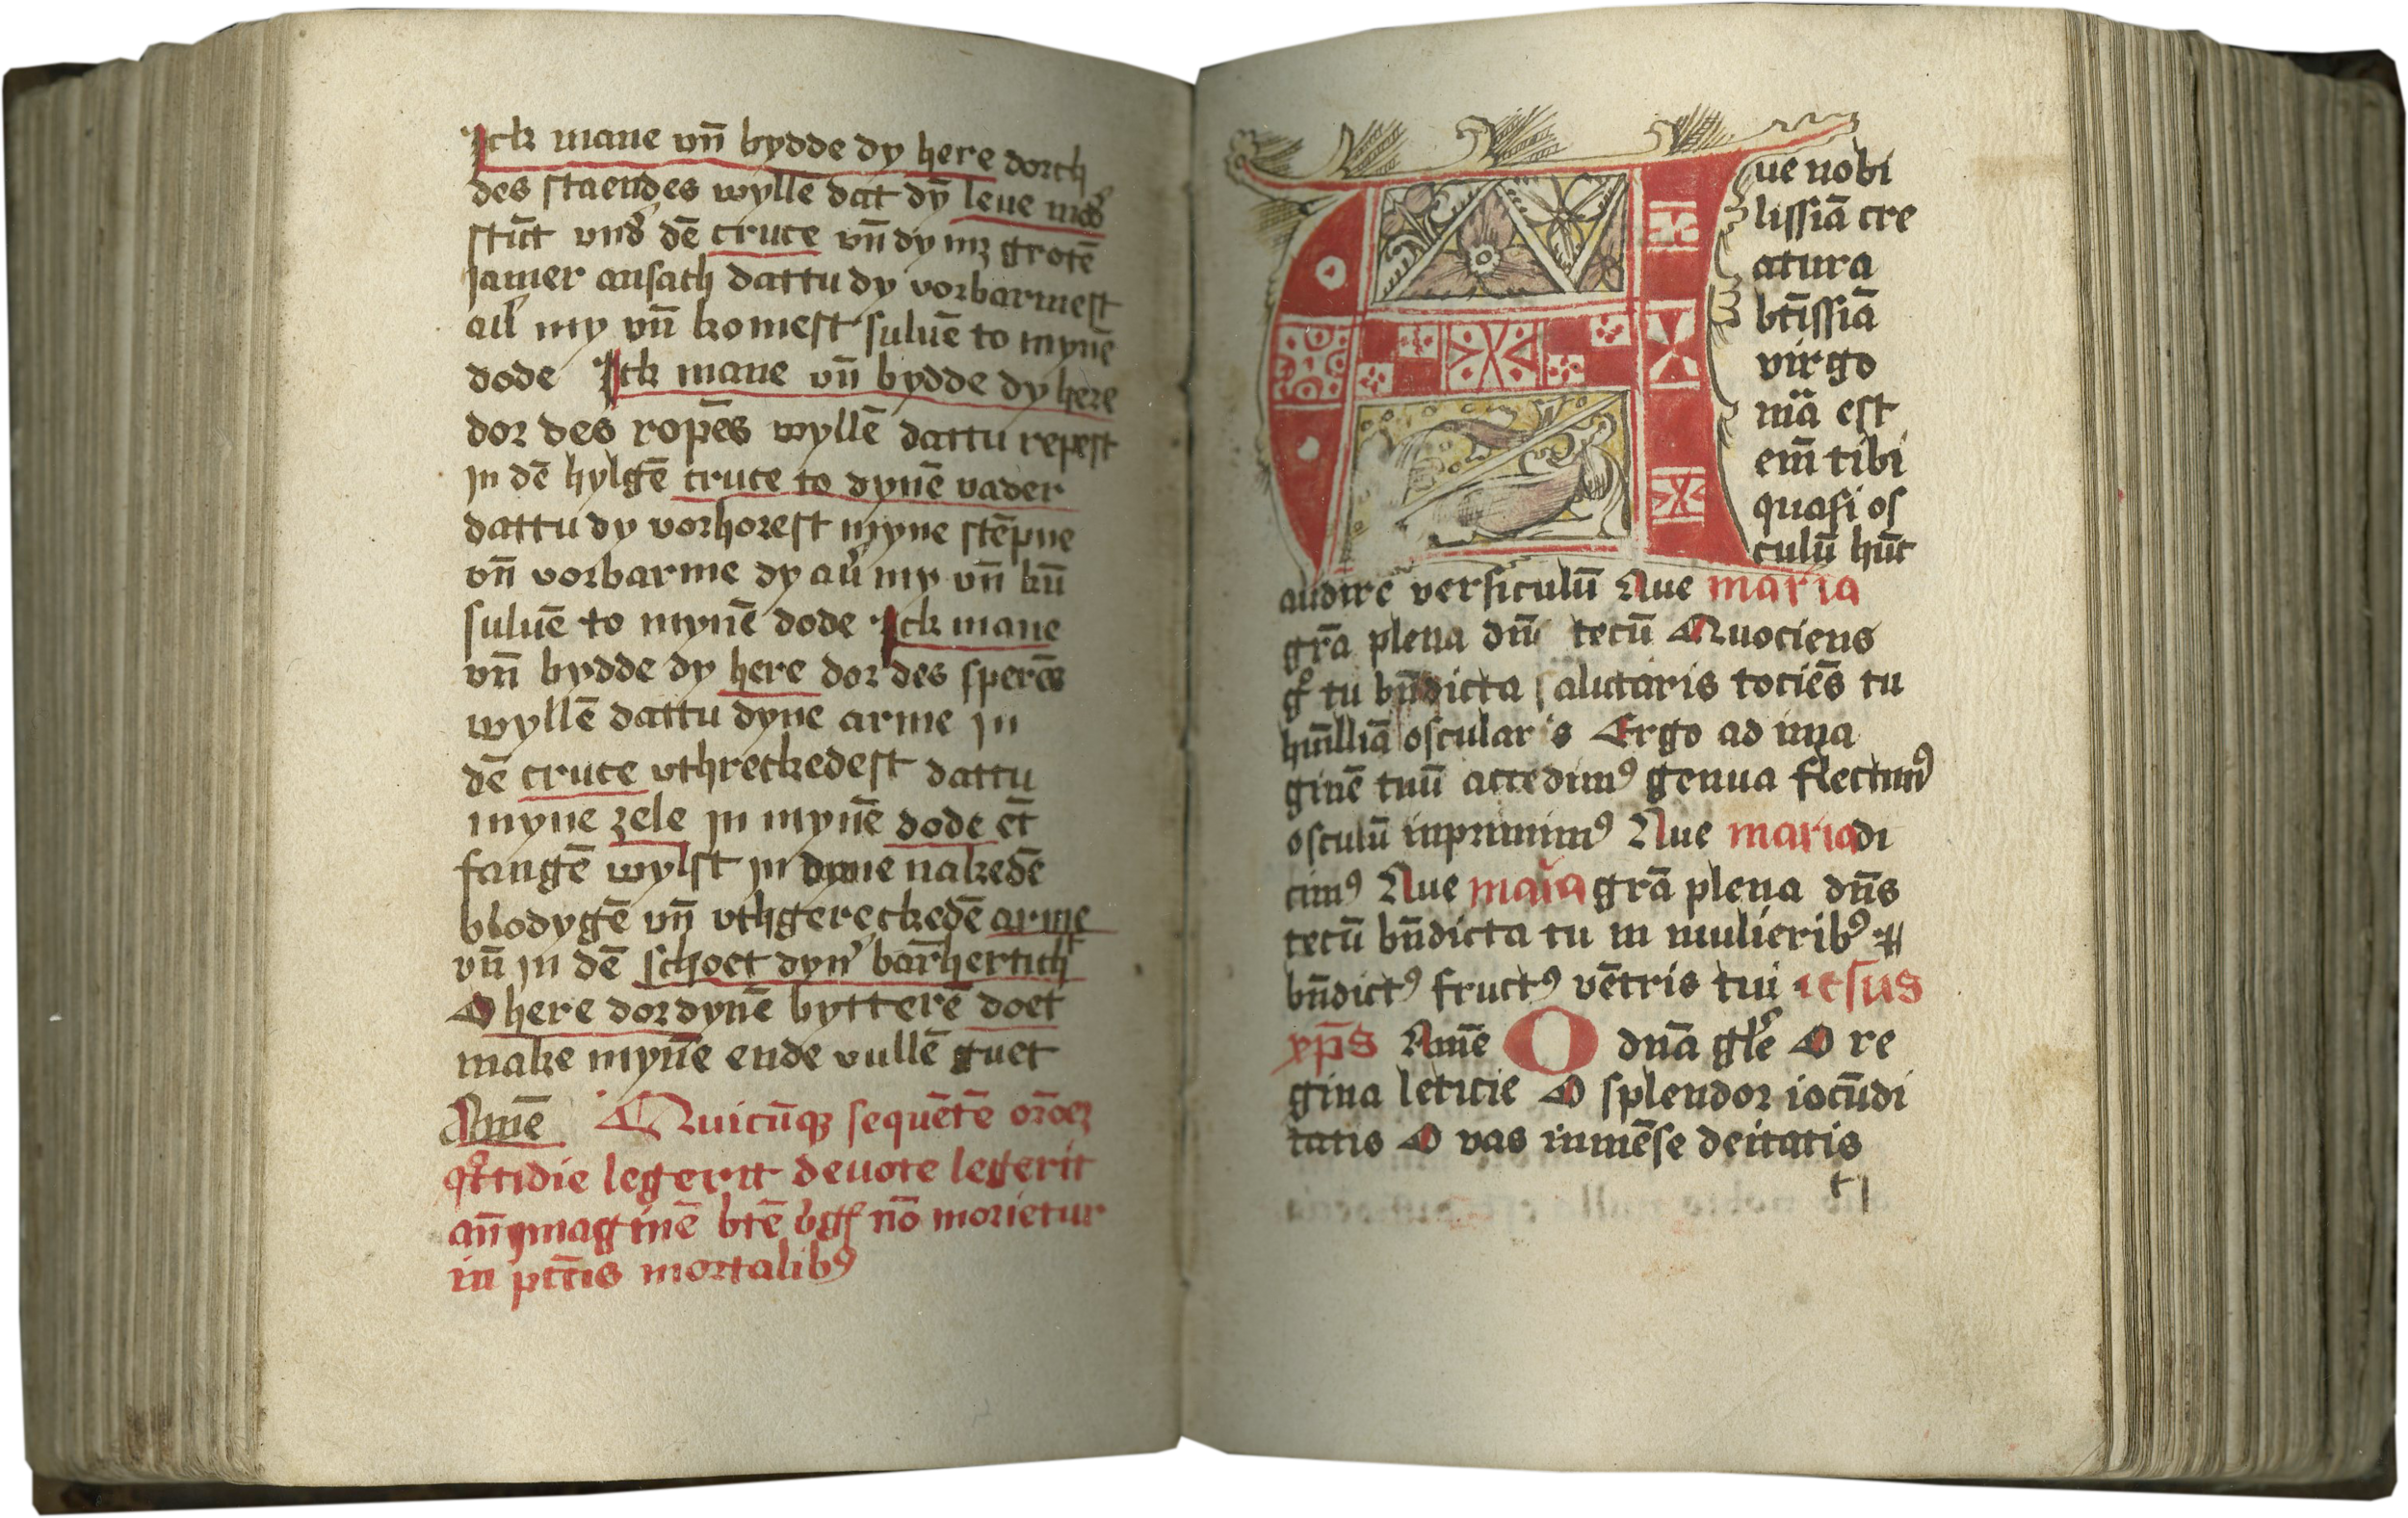 Ick mane vn̄ bydde dy here dorch
des staendes wylle dat dȳ leue mod᷒
stūt vnd᷒ dē cruce vn̄ dy mꝫ grotē
Jamer ansach dattu dy vorbarmest
aū my vn̄ komest suluē to mynē
dode Ick mane vn̄ bydde dy here
dor des ropēs wyllē dattu repest
in dē hylgē cruce to dynē vader
dattu dy vorhorest myne stēpne
vn̄ vorbarme dy aū my vn̄ kū
suluē to mynē dode Ick mane
vn̄ bydde dy here dor des sperēs
wyllē dattu dyne arme in
dē cruce vthreckedest dattu
myne zele in mynē dode ēt
fangē wylst in dyne nakedē
blodygē vn̄ vthgereckedē arme
vn̄ in dē schoet dyn᷒ barhertich
O here dor dynē bytterē doet
make mynē ende vullē guet
Amē Quicūqꝫ sequētē orōeꝫ
qͦttidie legerit deuote legerit
an̄ ymaginē btē vgͥs nō morietur
in pctīs mortalibꝰ
Aue nobi
lissiā cre
atura
btīssiā
virgo
mā est
em̄ tibi
quasi os
culū hūt
audire versiculū Aue maria
grā plena dn̄s tecū Quociens
gͦ tu bn̄dicta salutaris tociēs tu
hūlliā oscularis Ergo ad yma
ginē tuū accedimꝰ genua flectimꝰ
osculū inprimimꝰ Aue maria di
cimꝰ Aue maria grā plena dn̄s
tecū bn̄dicta tu in mulieribꝰ ⁊
bn̄dictꝰ fructꝰ vētris tui iesus
xp̄s Amē O dn̄a gl̄e O re
gina leticie O splendor iocūdi
tatis O vas inmēse deitatis